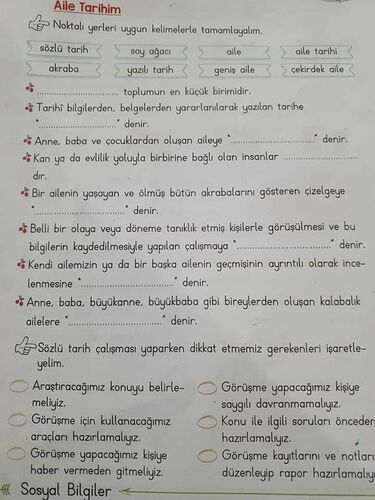 Aile Tarihim
Noktalı yerleri uygun kelimelerle tamamlayalım.
sözlü tarih soy ağacı aile aile tarihi
akraba yazılı tarih geniş aile çekirdek aile
.............................. toplumun en küçük birimidir.
Tarihî bilgilerden, belgelerden yararlanılarak yazılan tarihe
"............................" denir.
Anne, baba ve çocuklardan oluşan aileye "............................" denir.
Kan ya da evlilik yoluyla birbirine bağlı olan insanlar ..........................
dır.
Bir ailenin yaşayan ve ölmüş bütün akrabalarını gösteren çizelgeye
"..............................." denir.
Belli bir olaya veya döneme tanıklık etmiş kişilerle görüşülmesi ve bu
bilgilerin kaydedilmesiyle yapılan çalışmaya "..............................." denir.
Kendi ailemizin ya da bir başka ailenin geçmişinin ayrıntılı olarak ince-
lenmesine "..............................." denir.
Anne, baba, büyükanne, büyükbaba gibi bireylerden oluşan kalabalık
ailelere "..............................." denir.
Sözlü tarih çalışması yaparken dikkat etmemiz gerekenleri işaretle-
yelim.
Araştıracağımız konuyu belirle-
meliyiz.
Görüşme için kullanacağımız
araçları hazırlamalıyız.
Görüşme yapacağımız kişiye
haber vermeden gitmeliyiz.
Görüşme yapacağımız kişiye
saygılı davranmamalıyız.
Konu ile ilgili soruları önceden
hazırlamalıyız.
Görüşme kayıtlarını ve notları
düzenleyip rapor hazırlamalıyı
Sosyal Bilgiler